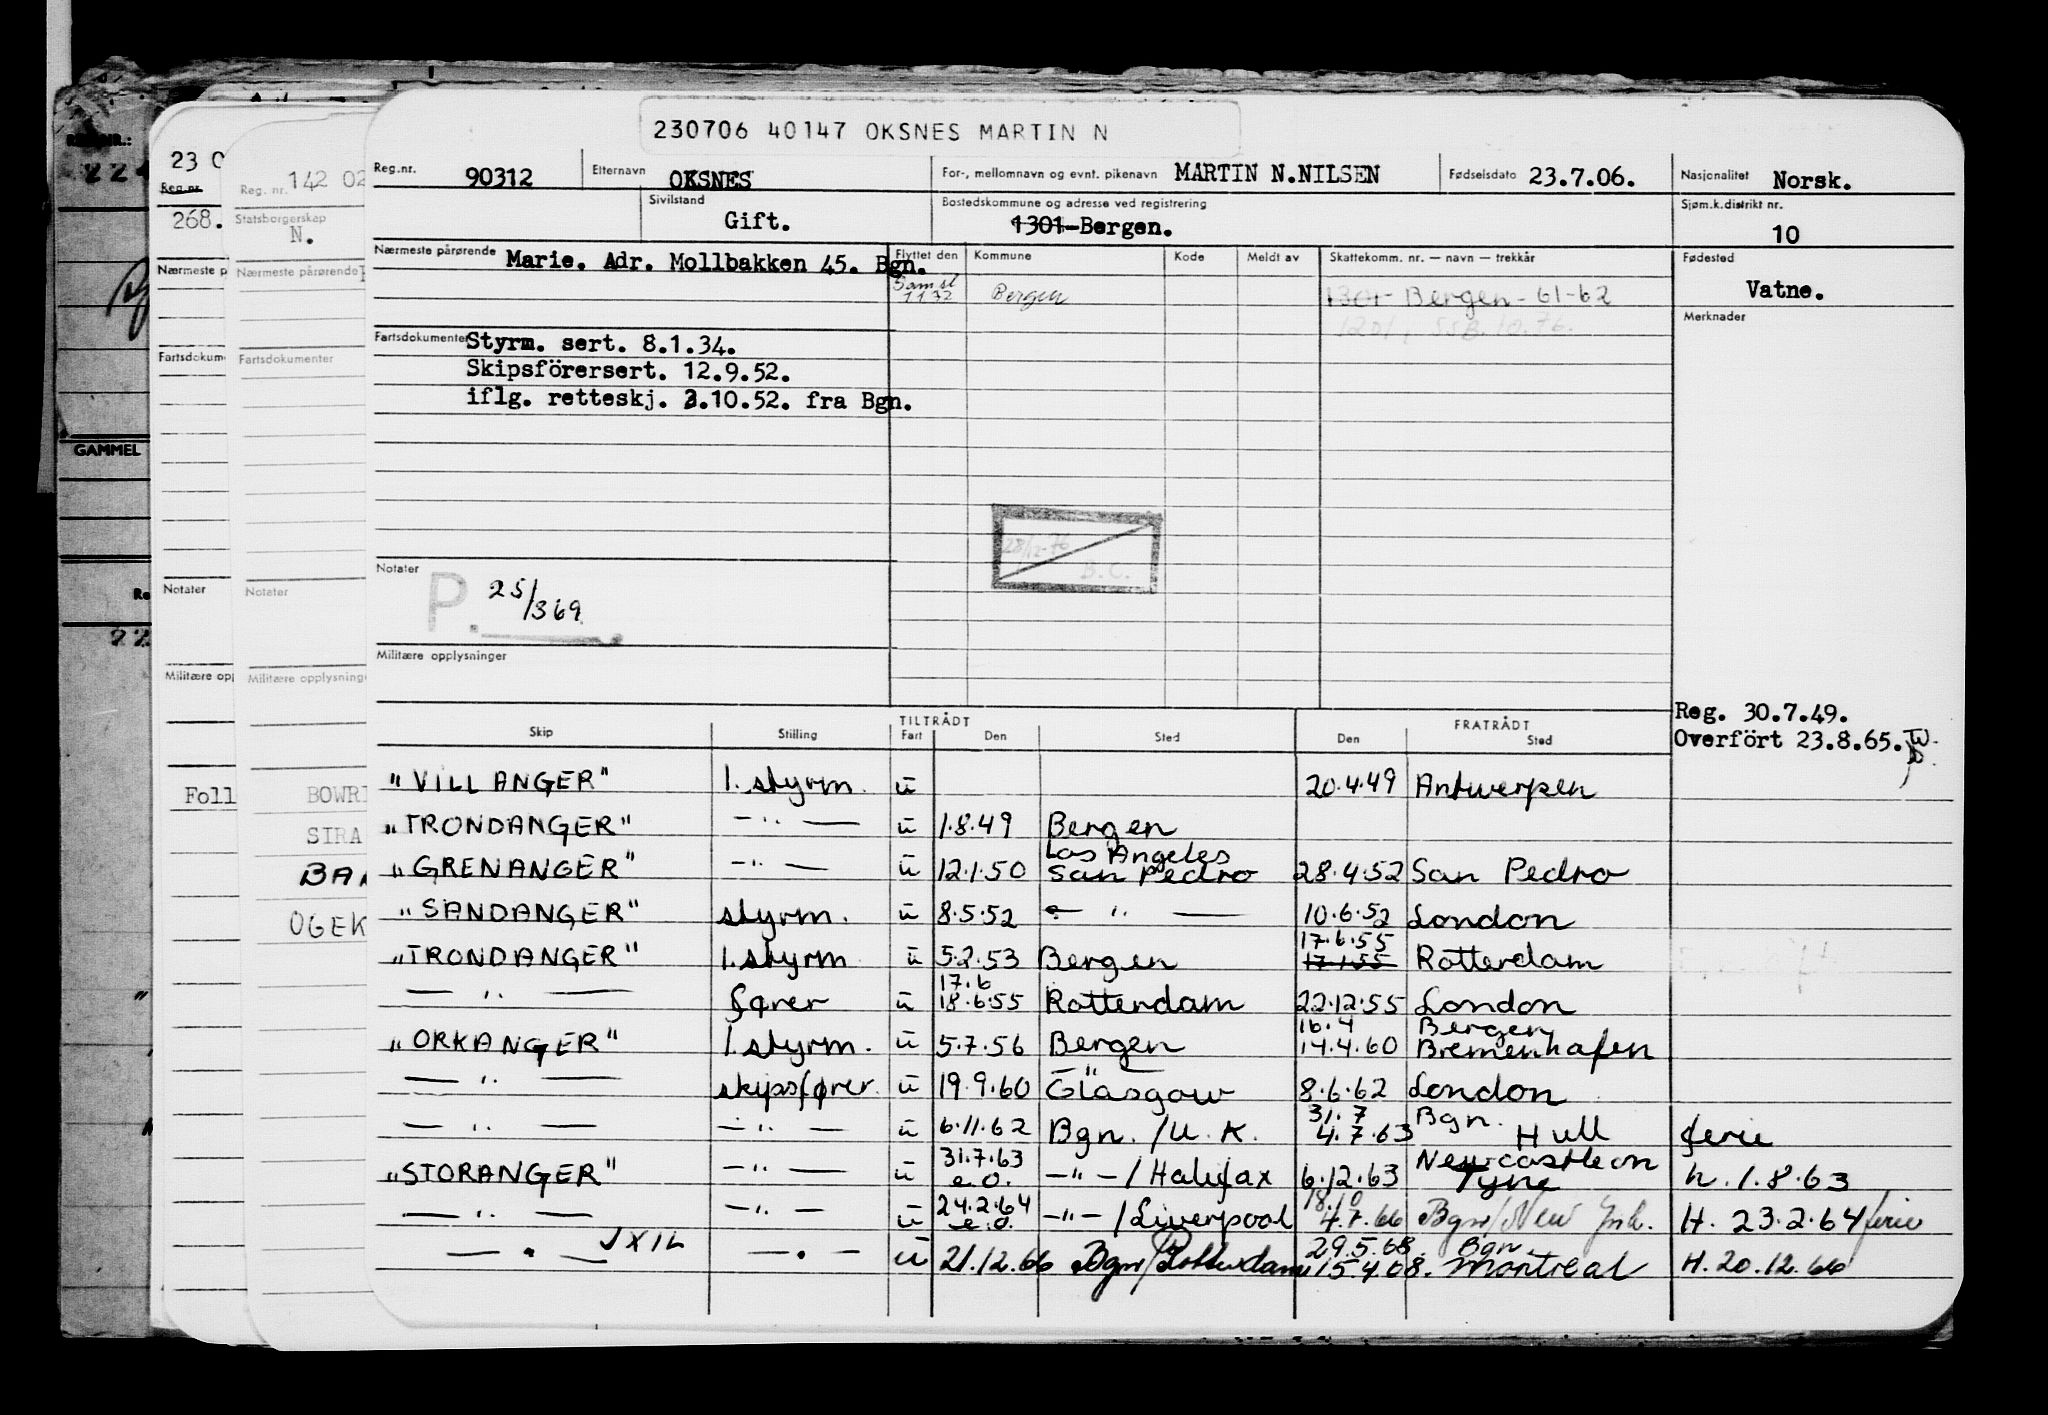 230706 40147 OKSNES MARTIN N
Reg.nr. 90312 Etternavn OKSNES For-, mellomnavn og evnt. pikenavn MARTIN N.NILSEN Fødselsdato 23.7.06. Nasjonalitet Norsk.
Sivilstand Gift. Bostedskommune og adresse ved registrering 1301 Bergen. Sjøm.k.distrikt nr. 10
Nærmeste pårørende Marie. Adr. Mollbakken 45. Bgn. Flyttet den Kommune Kode Meldt av Skattekomm. nr. — navn — trekkår Fødested
Bergen 1301 Bergen - 61-62 Vatne.
Merknader
Fartsdokumenter Styrm. sert. 8.1.34.
Skipsförersert. 12.9.52.
iflg. retteskj. 2.10.52. fra Bgn.
28/12-76
B.C.
Notater P. 25/369
Militære opplysninger
Reg. 30.7.49.
Overfört 23.8.65.
TILTRÅDT FRATRÅDT
Skip Stilling Fart Den Sted Den Sted
"VILLANGER" 1. styrm. u 20.4.49 Antwerpen
"TRONDANGER" — " — u 1.8.49 Bergen
Los Angeles
"GRENANGER" — " — u 12.1.50 San Pedro 28.4.52 San Pedro
"SANDANGER" styrm. u 8.5.52 — " — 10.6.52 London
17.6.55
"TRONDANGER" 1. styrm u 5.2.53 Bergen 17.1.55 Rotterdam
17.6
— " — fører u 18.6.55 Rotterdam 22.12.55 London
16.4 Bergen
"ORKANGER" 1. styrm. u 5.7.56 Bergen 14.4.60 Bremenhafen
— " — skipsfører. u 19.9.60 Glasgow 8.6.62 London
31.7 Bgn.
— " — — " — u 6.11.62 Bgn. / U.K. 4.7.63 Hull ferie
31.7.63 Newcastle on
"STORANGER" — " — u e.o. — " — / Halifax 6.12.63 Tyne h. 1.8.63
24.2.64 18/10
— " — — " — u e.o. — " — / Liverpool 4.7.66 Bgn/New York. H. 23.2.64 ferie
JXIL 29.5.68. Bgn.
— " — — " — u 21.12.66 Bgn/Rotterdam 15.4.68. Montreal H. 20.12.66
23 0
Reg.nr.
268.
Nærmeste p
Fartsdokum
Notater
Militære opp
Foll
Reg. nr. 142 02
Statsborgerskap
N.
Nærmeste pårørende
Fartsdokumenter
Notater
Militære opplysninge
BOWRI
SIRA
BAN
OGEK
GAMMEL